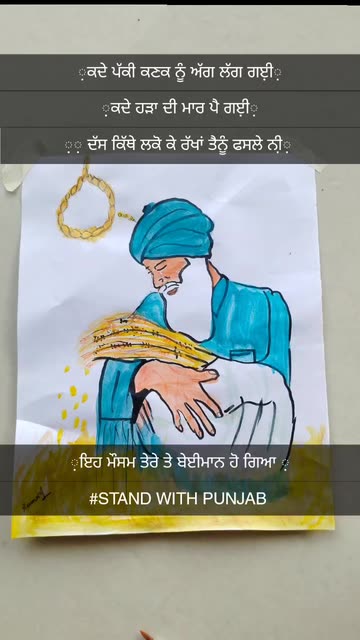 ਼ਕਦੇ ਪੱਕੀ ਕਣਕ ਨੂੰ ਅੱਗ ਲੱਗ ਗਈ਼਼
਼ਕਦੇ ਹੜਾ ਦੀ ਮਾਰ ਪੈ ਗਈ਼਼
਼਼ ਦੱਸ ਕਿੱਥੇ ਲਕੋ ਕੇ ਰੱਖਾਂ ਤੈਨੂੰ ਫਸਲੇ ਨੀ਼਼
਼ਇਹ ਮੌਸਮ ਤੇਰੇ ਤੇ ਬੇਈਮਾਨ ਹੋ ਗਿਆ ਼
#STAND WITH PUNJAB